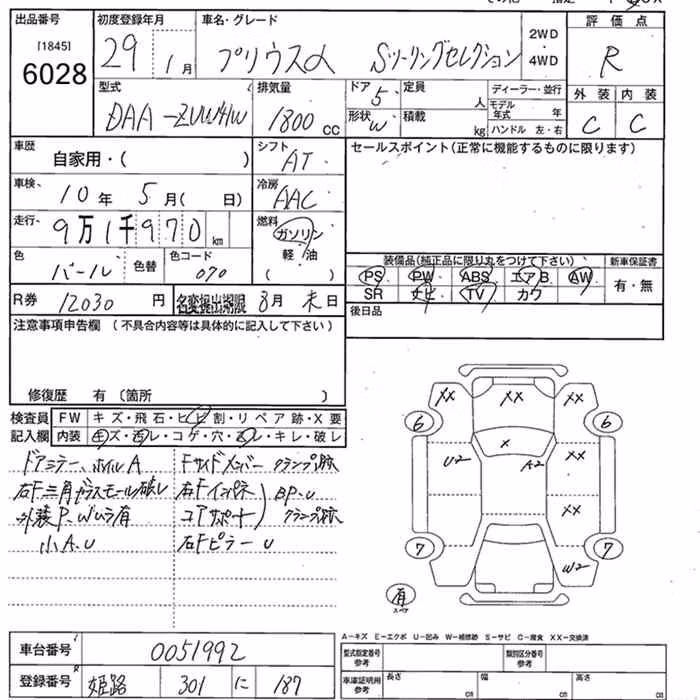 出品番号 初度登録年月 車名・グレード 2WD 評価点
[1845] 6028 29 1月 プリウスα Sツーリングセレクション 4WD R
型式 排気量 ドア 5 定員 人 ディーラー・並行 外装 内装
DAA-ZVW41W 1800 cc 形状 W 積載 kg モデル年式 年 ハンドル 左・右 C C
車歴 自家用・( ) シフト AT セールスポイント(正常に機能するものに限ります)
車検、 10年 5月( 日) 冷房 AAC
走行、 9万1千970km 燃料 ガソリン
軽・油
( )
色 パール 色替 色コード 070
装備品(純正品に限り丸をつけて下さい) 新車保証書
PS PW ABS エアB AW 有・無
SR ナビ TV カワ
R券 12030円 名変提出期限 8月 末日 後日品
注意事項申告欄(不具合内容等は具体的に記入して下さい)
修復歴 有(箇所 )
検査員 FW キズ・飛石・ヒビ割・リペア跡・X要
記入欄 内装 キズ・汚レ・コゲ・穴・スレ・キレ・破レ
ドアミラー、ホイルA Fサイドメンバー クランプ跡
右F三角ガラスモール破レ 右Fインパネ BP.U
外装P.Wムラ有 コアサポート クランプ跡
小A.U 右Fピラー U
XX XX XX
6 6
X
U2 A2 XX
XX
7 7
W2
有
スペア
A-キズ E-エクボ U-凹み W-補修跡 S-サビ C-腐食 XX-交換済
車台番号 0051992 型式指定番号 参考 類別区分番号 参考
登録番号 姫路 301 に 187 車庫証明用 参考 長さ cm 幅 cm 高さ cm